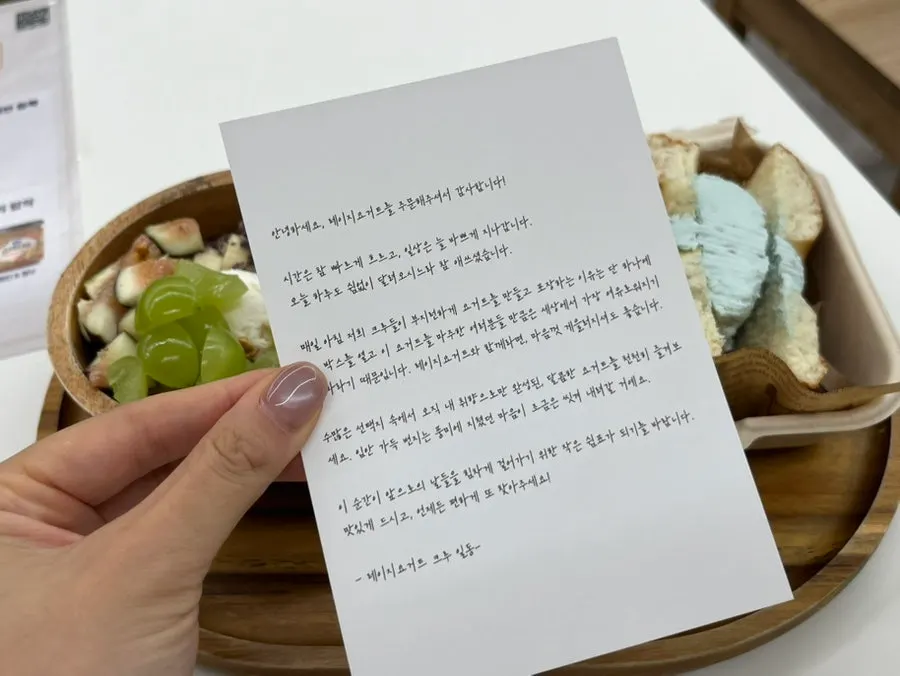 안녕하세요, 레이지요거트를 주문해주셔서 감사합니다!
시간은 참 빠르게 흐르고, 일상은 늘 바쁘게 지나갑니다.
오늘 하루도 쉼없이 달려오시느라 참 애쓰셨습니다.
매일 아침 저희 크루들이 부지런하게 요거트를 만들고 포장하는 이유는 단 하나예
박스를 열고 이 요거트를 마주한 여러분들 만큼은 세상에서 가장 여유로워지기
바라기 때문입니다. 레이지요거트와 함께라면, 마음껏 게을러지셔도 좋습니다.
수많은 선택지 속에서 오직 내 취향으로만 완성된, 달콤한 요거트를 천천히 즐겨보
세요. 입안 가득 번지는 풍미에 지쳤던 마음이 조금은 씻겨 내려갈 거예요.
이 순간이 앞으로의 날들을 힘차게 걸어가기 위한 작은 쉼표가 되기를 바랍니다.
맛있게 드시고, 언제든 편하게 또 찾아주세요!
- 레이지요거트 크루 일동-